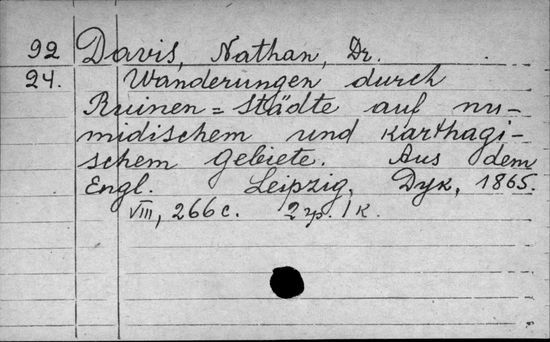 92 Davis, Nathan, Dr.
24. Wanderungen durch
Ruinen=Städte auf nu-
midischem und karthagi-
schem Gebiete. Aus dem
Engl. Leipzig, Dyk, 1865.
VIII, 266 c. 2 гр. 1 к.